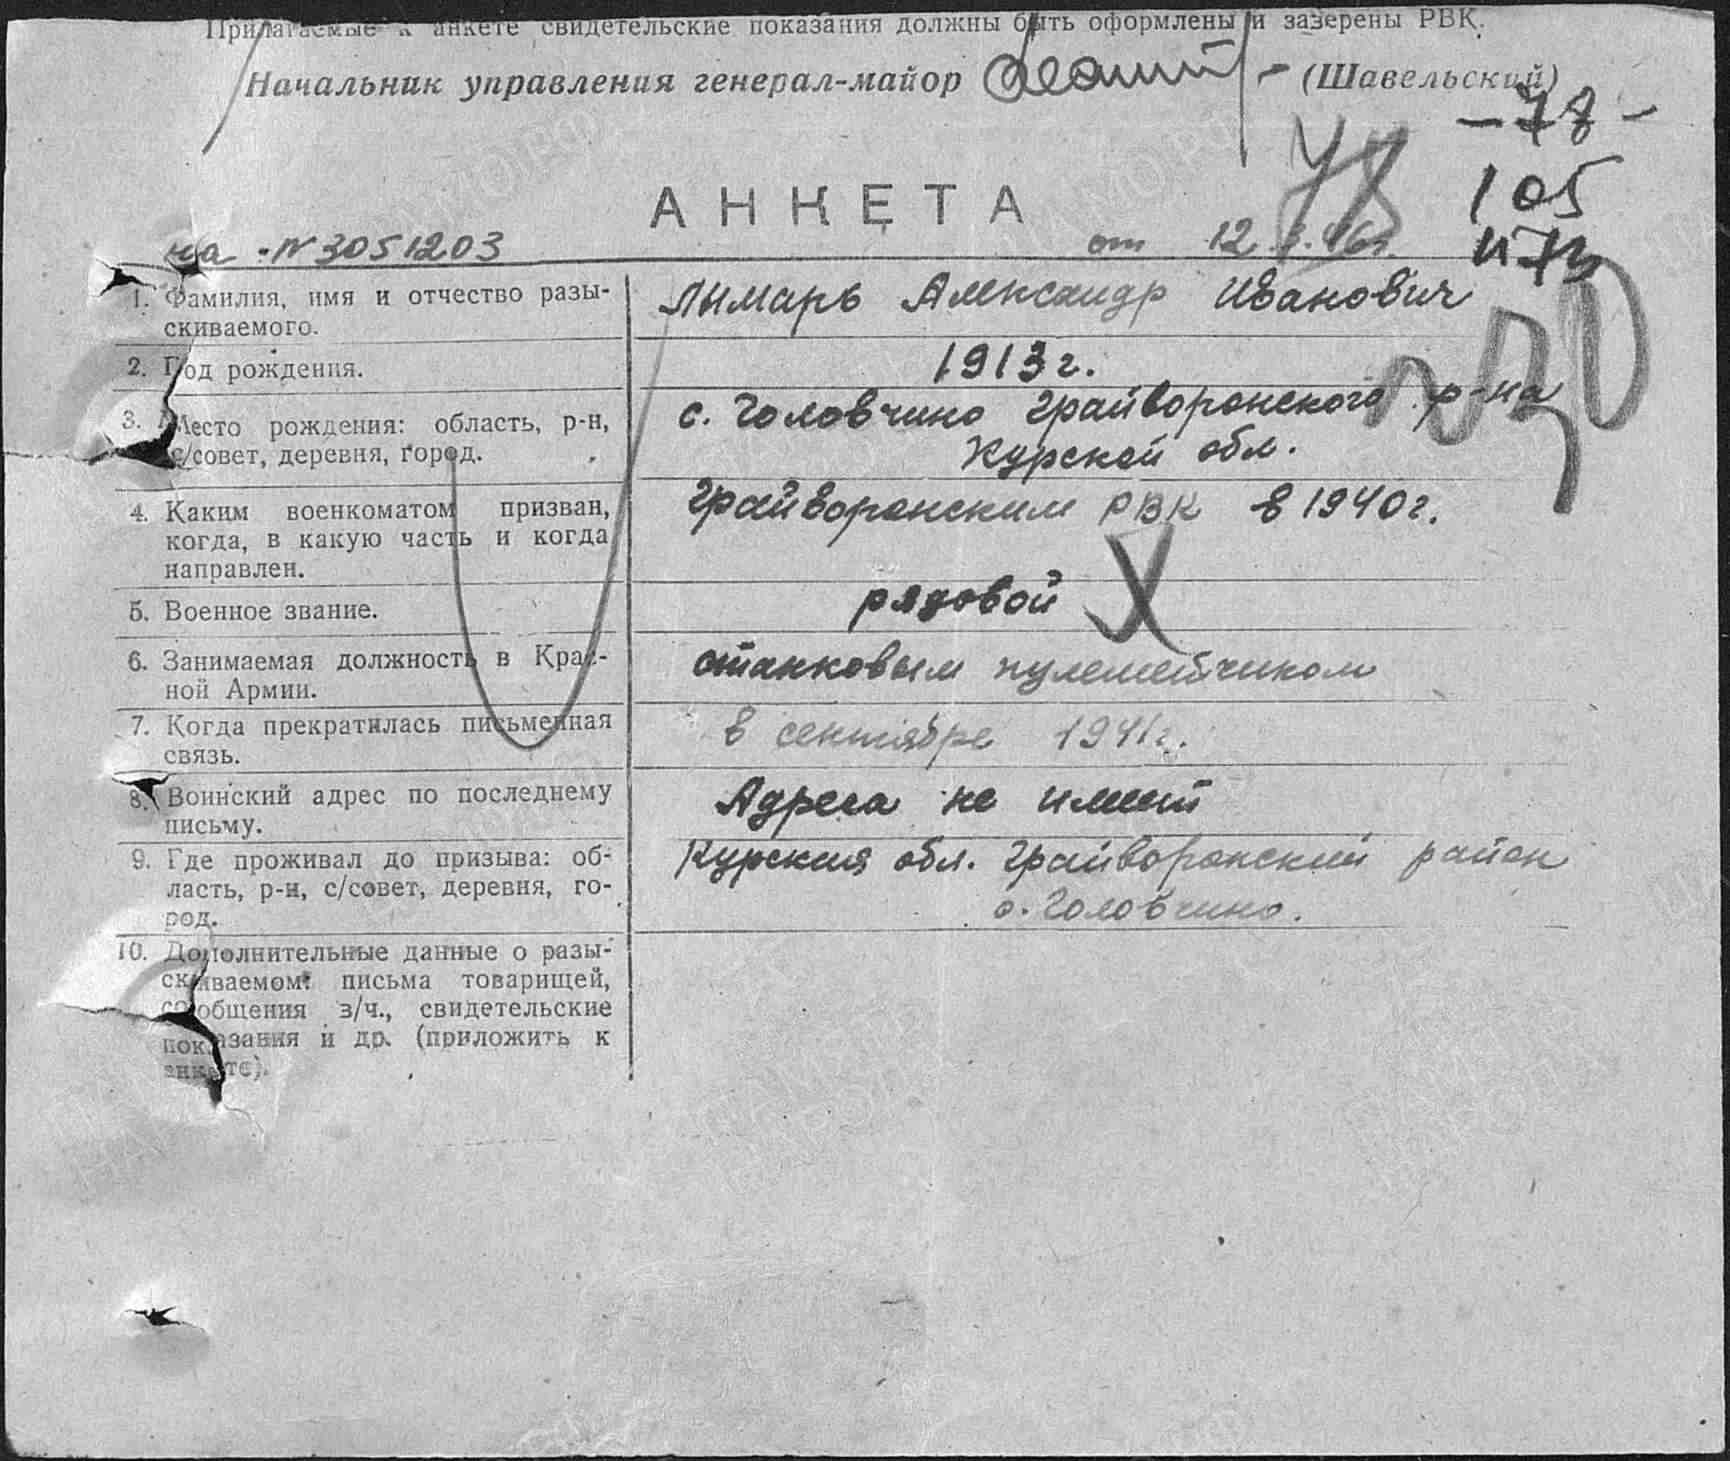 Прилагаемые к анкете свидетельские показания должны быть оформлены и заверены РВК.
Начальник управления генерал-майор (Шавельский)
-78-
78
105
АНКЕТА
на -N3051203 от 12. .46г.
1. Фамилия, имя и отчество разы-
скиваемого.
Лымарь Александр Иванович
2. Год рождения.
1913г.
3. Место рождения: область, р-н,
с/совет, деревня, город.
с. Головчино Грайворонского р-на
Курской обл.
4. Каким военкоматом призван,
когда, в какую часть и когда
направлен.
Грайворонским РВК в 1940г.
5. Военное звание.
рядовой
6. Занимаемая должность в Крас-
ной Армии.
станковым пулеметчиком
7. Когда прекратилась письменная
связь.
в сентябре 1941г.
8. Воинский адрес по последнему
письму.
Адреса не имеет
9. Где проживал до призыва: об-
ласть, р-н, с/совет, деревня, го-
род.
Курская обл. Грайворонский район
с. Головчино.
10. Дополнительные данные о разы-
скиваемом: письма товарищей,
сообщения з/ч., свидетельские
показания и др. (приложить к
анкете).